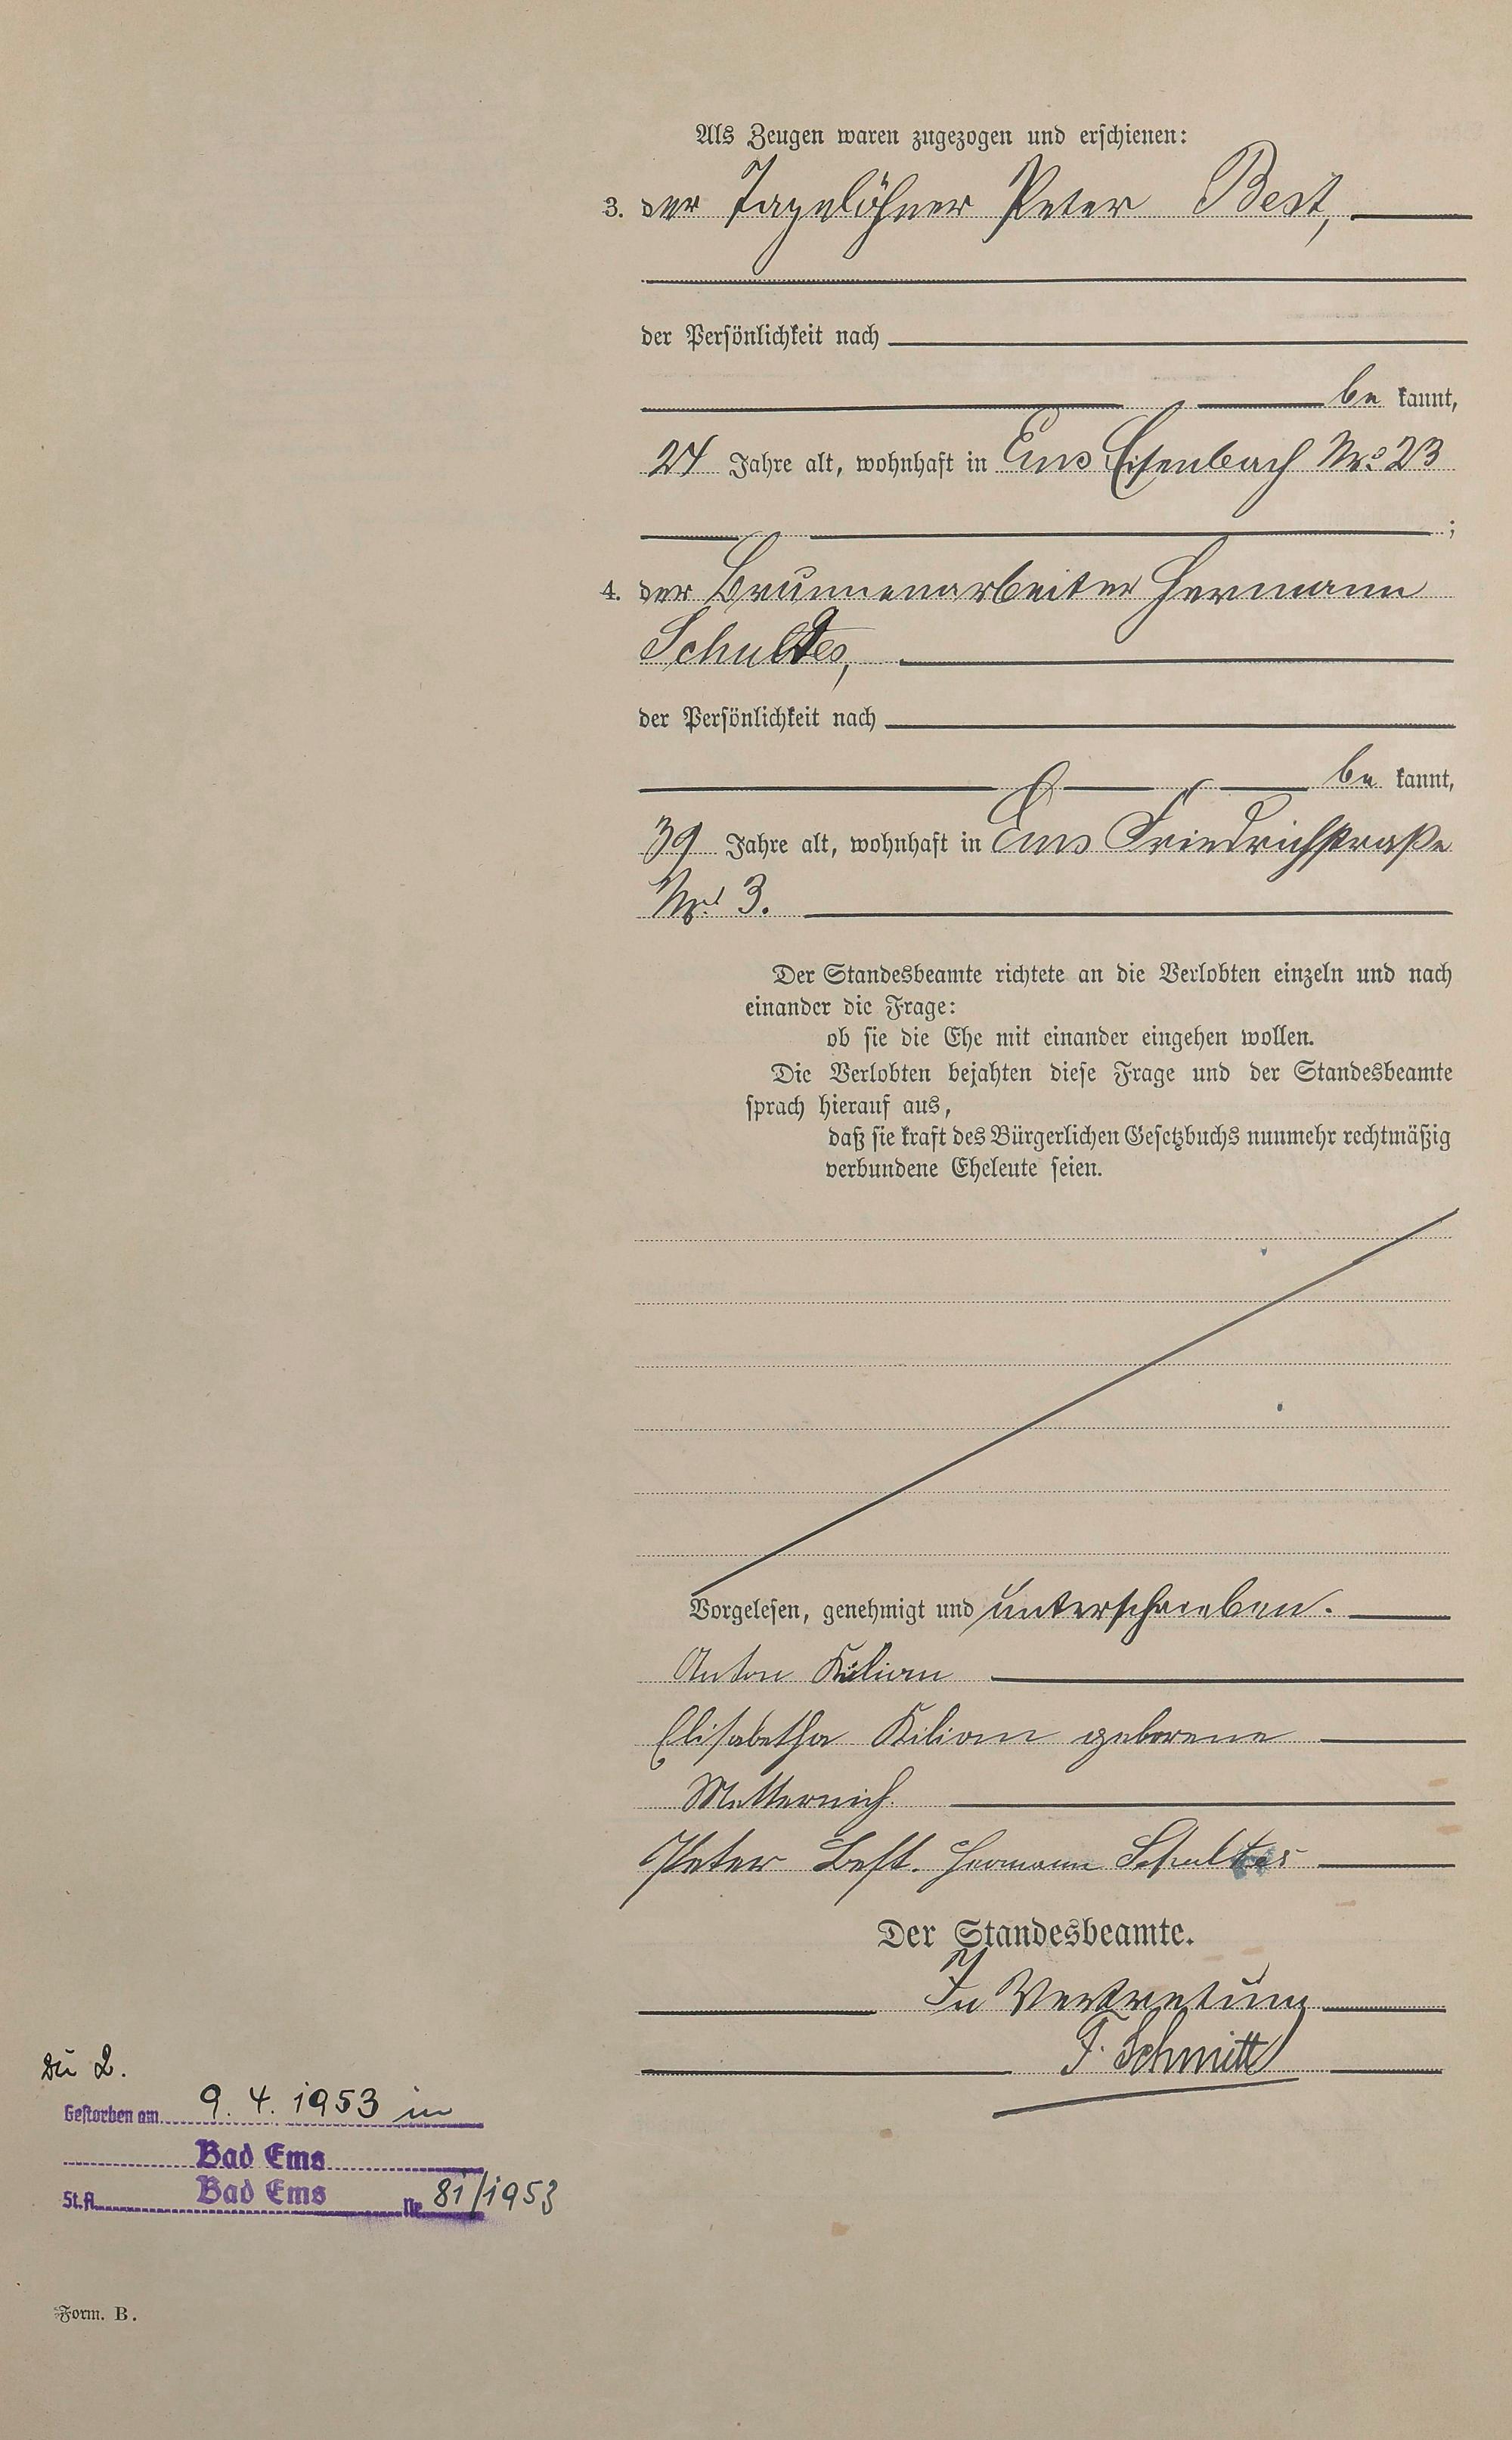 Als Zeugen waren zugezogen und erschienen:
3. der Tagelöhner Peter Best,
der Persönlichkeit nach
be kannt,
24 Jahre alt, wohnhaft in Ems Eisenbach No 23
;
4. der Brunnenarbeiter Hermann
Schultes,
der Persönlichkeit nach
be kannt,
39 Jahre alt, wohnhaft in Ems Friedrichstraße
No 3.
Der Standesbeamte richtete an die Verlobten einzeln und nach
einander die Frage:
ob sie die Ehe mit einander eingehen wollen.
Die Verlobten bejahten diese Frage und der Standesbeamte
sprach hierauf aus,
daß sie kraft des Bürgerlichen Gesetzbuchs nunmehr rechtmäßig
verbundene Eheleute seien.
Vorgelesen, genehmigt und unterschrieben.
Anton Kilian
Elisabetha Kilian geborene
Metternich.
Peter Best. Hermann Schultes
Der Standesbeamte.
In Vertretung
F. Schmitt
Zu 2.
Gestorben am 9. 4. 1953 in
Bad Ems
St.A. Bad Ems Nr. 81/1953
Form. B.